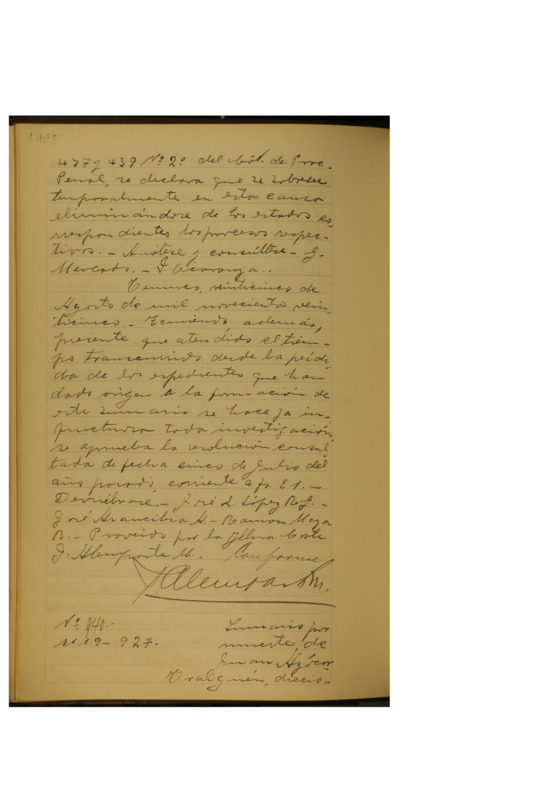 437 y 439 Nº 2º del Cód. de Proc.
Penal, se declara que se sobresee
temporalmente en esta causa
eliminándose de los estados co-
rrespondientes los procesos respec-
tivos. - Anótese y consúltese - G.
Mercado. - J.
Temuco, veinticinco de
Agosto de mil novecientos vein-
ticinco. - Teniendo, además,
presente que atendido el tiem-
po transcurrido desde la pérdi-
da de los espedientes que han
dado origen a la formación de
este sumario se hace ya in-
fructuosa toda investigación,
se aprueba la resolución consul-
tada de fecha cinco de Julio del
año pasado, corriente a fs. 21. -
Devuélvase - José L. López R. G. -
José Arancibia A. - Ramon Meza
B. - Proveido por la Iltma. Corte.
J. Alemparte M. Conforme
J. Alemparte M.
Nº 940.-
927.
Sumario por
muerte de
Juan Azócar
Traiguén, diecio-